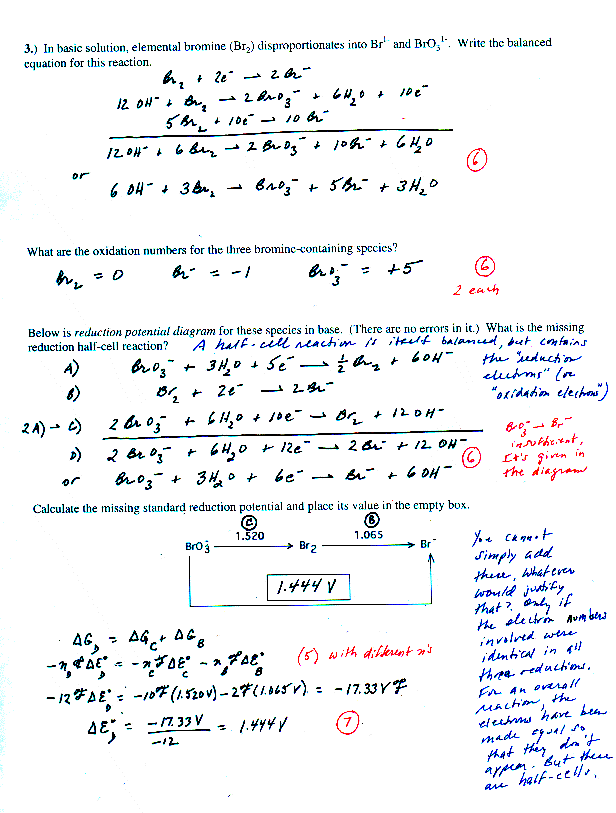 3.) In basic solution, elemental bromine (Br₂) disproportionates into Br¹⁻ and BrO₃¹⁻. Write the balanced
equation for this reaction.
Br₂ + 2e⁻ → 2 Br⁻
12 OH⁻ + Br₂ → 2 BrO₃⁻ + 6H₂O + 10e⁻
5 Br₂ + 10e⁻ → 10 Br⁻
12 OH⁻ + 6 Br₂ → 2 BrO₃⁻ + 10 Br⁻ + 6 H₂O
6
or
6 OH⁻ + 3 Br₂ → BrO₃⁻ + 5 Br⁻ + 3 H₂O
What are the oxidation numbers for the three bromine-containing species?
Br₂ = 0 Br⁻ = -1 BrO₃⁻ = +5
6
2 each
Below is reduction potential diagram for these species in base. (There are no errors in it.) What is the missing
reduction half-cell reaction? A half-cell reaction is itself balanced, but contains
the "reduction
electrons" (or
"oxidation electrons")
A) BrO₃⁻ + 3H₂O + 5e⁻ → ½ Br₂ + 6OH⁻
B) Br₂ + 2e⁻ → 2 Br⁻
2A) → C) 2 BrO₃⁻ + 6H₂O + 10e⁻ → Br₂ + 12 OH⁻
D) 2 BrO₃⁻ + 6H₂O + 12e⁻ → 2 Br⁻ + 12 OH⁻
6
or BrO₃⁻ + 3H₂O + 6e⁻ → Br⁻ + 6 OH⁻
BrO₃⁻ → Br⁻
insufficient,
It's given in
the diagram
Calculate the missing standard reduction potential and place its value in the empty box.
C B
1.520 1.065
BrO₃⁻ → Br₂ → Br⁻
1.444 V
ΔG_D = ΔG_C + ΔG_B
-n_D ℱΔE°_D = -n_C ℱΔE°_C - n_B ℱΔE°_B
(5) with different n's
-12ℱΔE°_D = -10ℱ(1.520V) - 2ℱ(1.065V) = -17.33Vℱ
ΔE°_D = -17.33V / -12 = 1.444V
7
You cannot
simply add
these, whatever
would justify
that? Only if
the electron numbers
involved were
identical in all
three reductions.
For an overall
reaction, the
electrons have been
made equal so
that they don't
appear. But these
are half-cells.